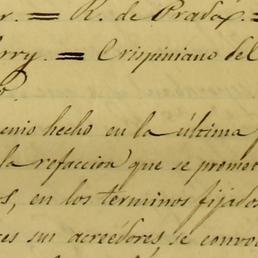 r. = R. de Prada. =
rry. = Crispiniano del
o.
enio hecho en la última
la refaccion que se promet
os, en los términos fijados
ces sus acreedores, se convo